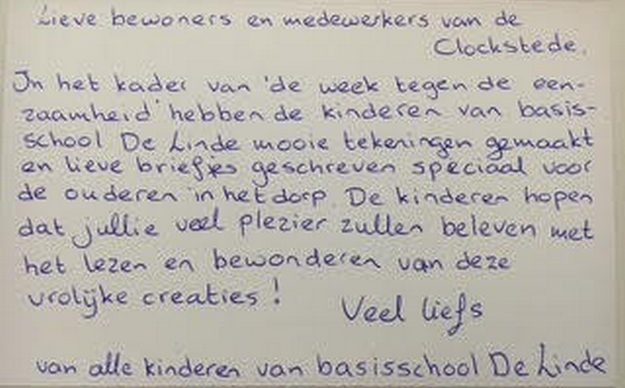 Lieve bewoners en medewerkers van de
Clockstede.
In het kader van 'de week tegen de een-
zaamheid' hebben de kinderen van basis-
school De Linde mooie tekeningen gemaakt
en lieve briefjes geschreven speciaal voor
de ouderen in het dorp. De kinderen hopen
dat jullie veel plezier zullen beleven met
het lezen en bewonderen van deze
vrolijke creaties!
Veel liefs
van alle kinderen van basisschool De Linde